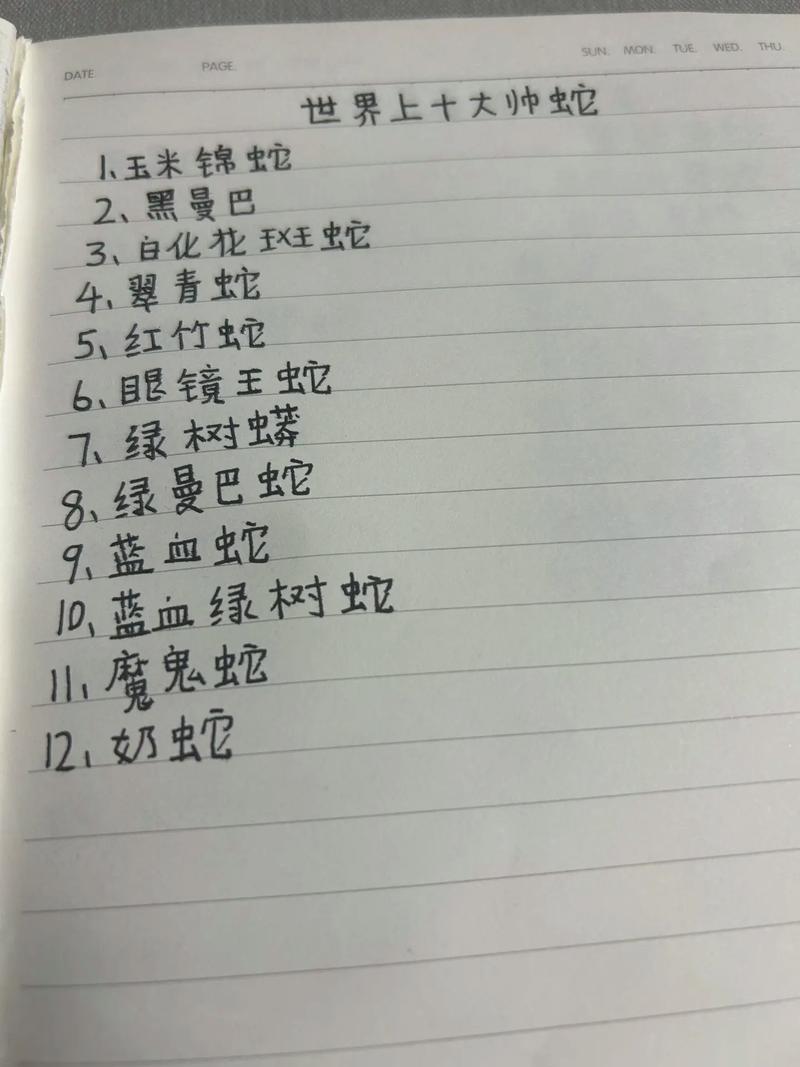 DATE PAGE. SUN. MON. TUE. WED. THU.
世界上十大帅蛇
1、玉米锦蛇
2、黑曼巴
3、白化花斑蛇
4、翠青蛇
5、红竹蛇
6、眼镜王蛇
7、绿树蟒
8、绿曼巴蛇
9、蓝血蛇
10、蓝血绿树蛇
11、魔鬼蛇
12、奶蛇